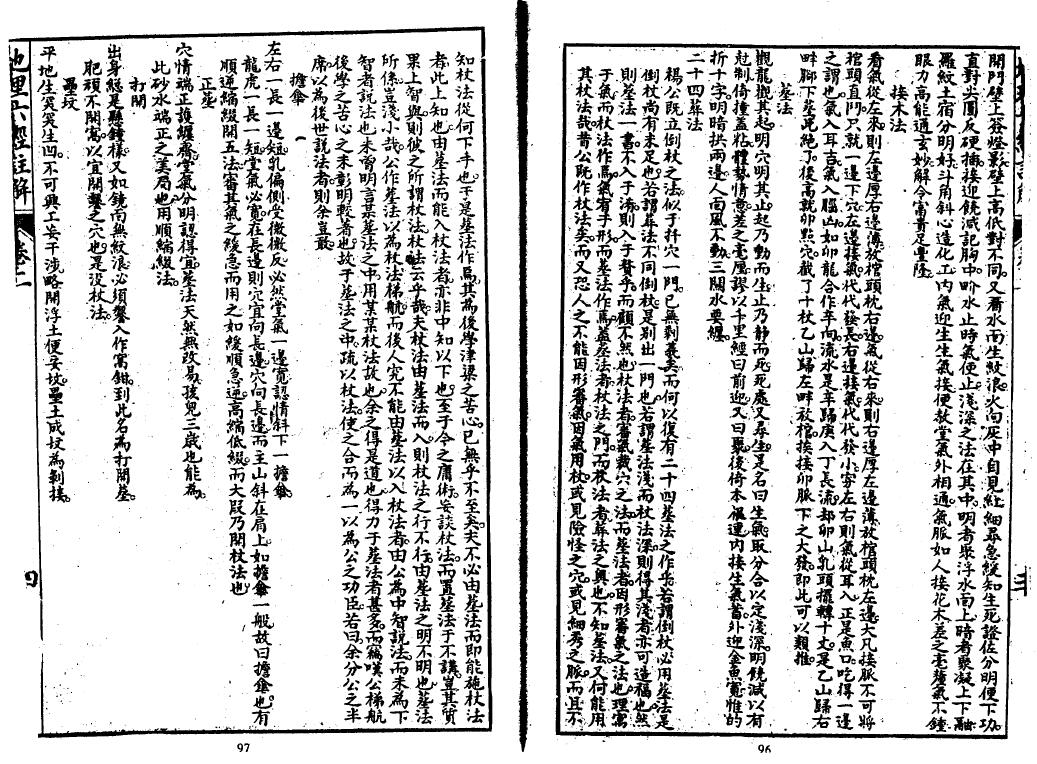 開門壁上簽燈影壁上高低對不同又看水面生紋浪火向灰中自見紅細尋急緩知生死證佐分明便下功
直對尖圓反硬攧接迎饒減記胸中吤水止時氣便止淺深之法在其中明者聚浮水面上暗者聚凝上下融
羅紋土宿分明好斗角斜心造化工內氣迎生生氣接便教堂氣外相通氣脈如人接花木差之毫釐氣不鍾
眼力高能通玄妙解令富貴足豐隆
接木法
看氣從左來則左邊厚右邊薄放棺頭枕右邊氣從右來則右邊厚左邊薄放棺頭枕左邊大凡接脈不可將
棺頭直鬥只就一邊下穴左邊接氣代代發長右邊接氣代代發小穿左右則氣從耳入正是魚口吃得一邊
之謂也氣入耳言氣入腦山如卯龍合作辛向流水是辛歸庚入丁長流却卯山乳頭擺轉十丈是乙山歸右
畔聊下塟跪絶了後高就卯點穴截了十杖乙山歸左畔放棺挨接卯脈下之大發即此可以類推
塟法
觀龍觀其起明穴明其止起乃動而生止乃靜而死死處又尋生是名曰生氣取分合以定淺深明饒減以有
尅制倚撞蓋粘體㔟情意差之毫厘謬以千里經曰前迎又曰聚後倚本催運內接生氣蓄外迎金魚寬惟的
折十字明暗拱兩邊人向風不動三關水要纏
二十四葬法
楊公既立倒杖之法似于扦穴一門已無剩義矣而何以復有二十四塟法之作乎若謂倒杖必用塟法是
倒杖尚有未足也若謂葬法不同倒杖是別出一門也若謂塟法淺而杖法深則得其淺者亦可造福也然
則塟法一書不入于淆則入于贅乎而顧不然也杖法者審氣裁穴之法而塟法者因形審氣之法也理寓
于氣而杖法作焉氣宥于形而塟法作焉蓋塟法者杖法之門而杖法者葬法之奥也不知塟法又何能用
其杖法哉昔公既作杖法矣而又恐人之不能因形審氣因氣用杖或見險怪之穴或見細秀之脈而且不
知杖法從何下手也于是塟法作焉其為後學津梁之苦心已無乎不至矣夫不必由塟法而即能施杖法
者此上知也由塟法而能入杖法者亦非中知以下也至于今之庸術妄談杖法而置塟法于不講豈其質
果上智與則彼之所謂杖法杖法云乎哉夫杖法由塟法而入則杖法之行不行由塟法之明不明也塟法
所係豈淺小哉公作塟法以為杖法梯航而後人究不能由塟法以入杖法者由公為中智說法而未為下
智者説法也未嘗明言某塟法之中用某某杖法故也余之得是道也得力于塟法者甚多而竊嘆公梯航
後學之苦心之未彰明較著也故于塟法之中疏以杖法使之合而為一以為公之功臣若曰余分公之半
席以為後世説法者則余豈敢
擔傘
左右一長一邊短乳偏側受微微反必然堂氣一邊寬認情斜下一擔傘
龍虎一長一短堂氣必寬在長邊則穴宜向長邊穴向長邊而主山斜在肩上如擔傘一般故曰擔傘也有
順逆縮綴開五法審其氣之緩急而用之如緩順急逆高縮低綴而大段乃開杖法也
正塟
穴情端正護纏齊堂氣分明認得宜塟法天然無改易孩兒三歳也能為
此砂水端正之美局也用順縮綴法
打開
出身縂是懸鐘樣又如鏡面無紋浪必須鑿入作窩鉗到此名為打開塟
肥頑不開窩以宜開鑿之穴也是没杖法
壘坟
平地生突突生凹不可興工妄干涉略開浮土便妥坟壘土成坟為剝接
地理六經註解
卷二
四
97
96